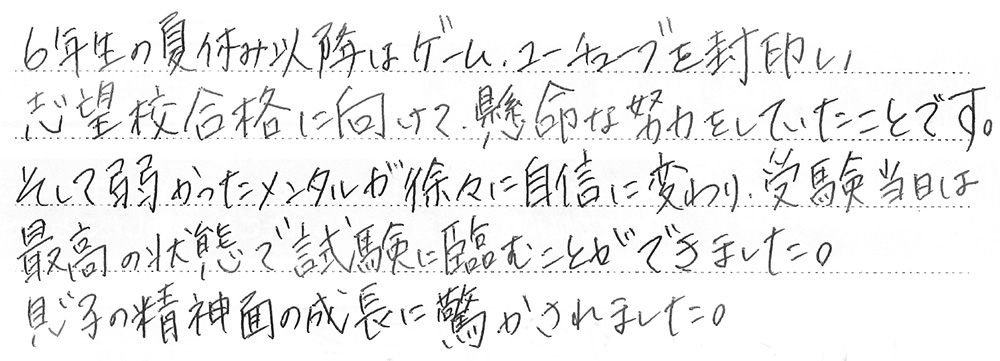 6年生の夏休み以降はゲーム、ユーチューブを封印し、
志望校合格に向けて、懸命な努力をしていたことです。
そして弱かったメンタルが徐々に自信に変わり、受験当日は
最高の状態で試験に臨むことができました。
息子の精神面の成長に驚かされました。